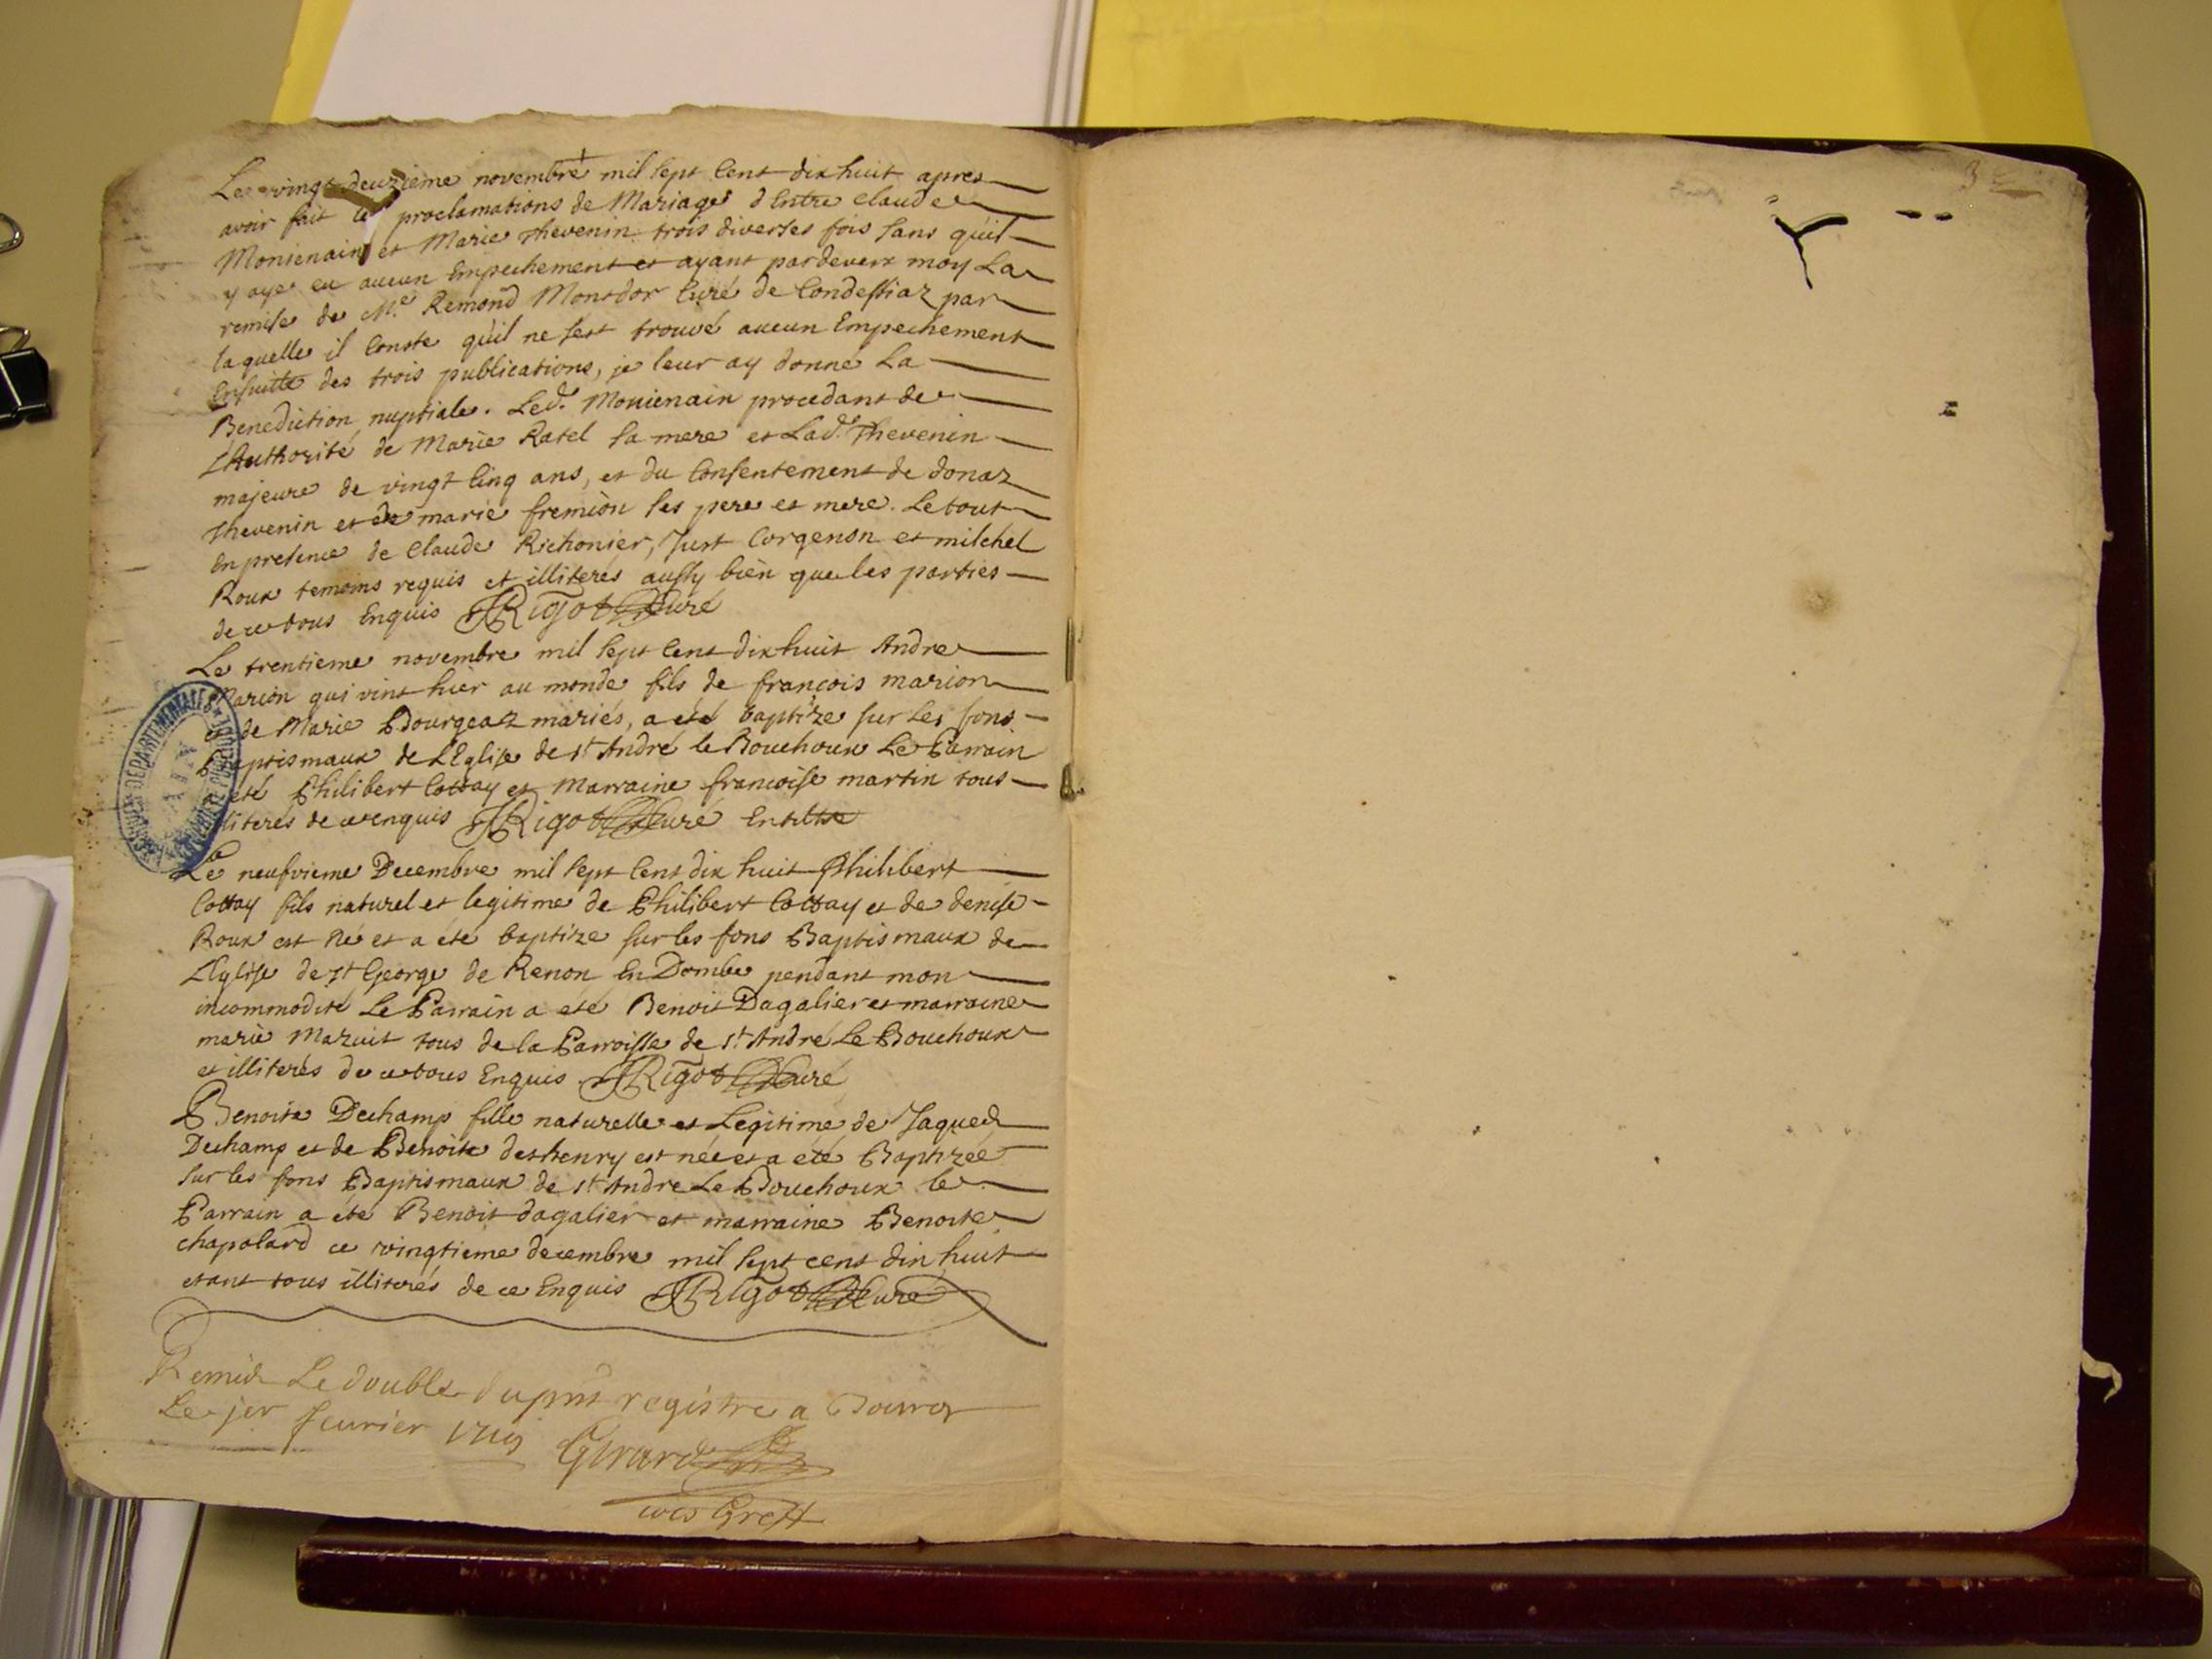 Le vingt deuzieme novembre mil sept Cent dix huit apres
avoir fait les proclamations de Mariage d'Entre Claude
Monienain et Marie Thevenin trois diverses fois sans qu'il
y aye eu aucun Empechement et ayant pardevers moy La
remise de Mre Remond Monsdor Curé de Condessiaz par
laquelle il Conste qu'il ne s'est trouvé aucun Empechement
Ensuitte des trois publications, je leur ay donné La
Benediction nuptiale. Led. Monienain procedant de
L'Authorité de Marie Ratel sa mere et Lad. Thevenin
majeure de vingt Cinq ans, et du Consentement de donaz
Thevenin et de marie fremion ses pere et mere. Le tout
En presence de Claude Richonier, Just Corgenon et milchel
Roux temoins requis et illiterés aussy bien que les parties
de ce tous Enquis Rigot Curé
Le trentieme novembre mil sept Cent dix huit Andre
Marion qui vint hier au monde fils de françois marion
et de Marie Bourgeaz mariés, a eté baptize sur Les fons
Baptismaux de L'Eglise de st André le Bouchoux Le Parrain
a eté Philibert Cottay et Marraine francoise martin tous
illiterés de ce enquis Rigot Curé
Le neufvieme Decembre mil sept Cent dix huit Philibert
Cottay fils naturel et legitime de Philibert Cottay et de denise
Roux est né et a eté baptize sur les fons Baptismaux de
L'Eglise de st George de Renon En Dombe pendant mon
incommodité Le Parrain a eté Benoit Dagalier et marraine
marie Mazuit tous de la Parroisse de st André Le Bouchoux
et illiterés de ce tous Enquis Rigot Curé
Benoite Dechamp fille naturelle et Legitime de Jaques
Dechamp et de Benoite deshenry est née et a eté Baptizée
sur les fons Baptismaux de st Andre Le Bouchoux le
Parrain a eté Benoit dagalier et marraine Benoite
chapolard ce vingtieme decembre mil sept cent dix huit
etant tous illiterés de ce Enquis Rigot Curé
Remis Le double du pnt registre a Bourg
Le jer feurier 1719 Girard
ARCHIVES DEPARTEMENTALES
AIN
3